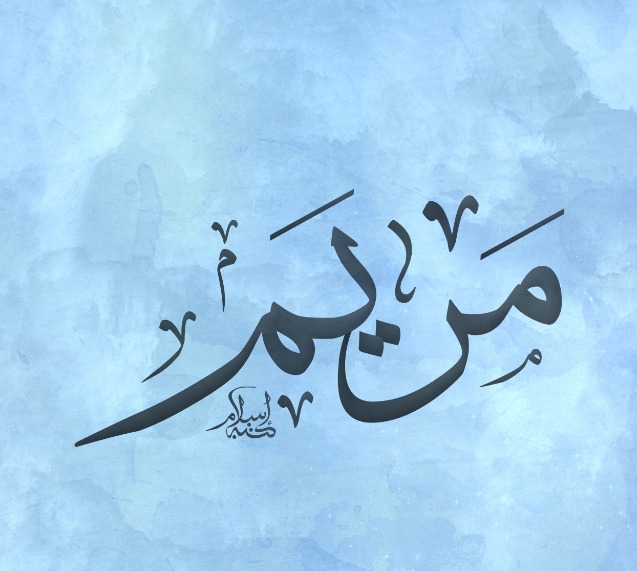 مَريَم
كتبه إسلام